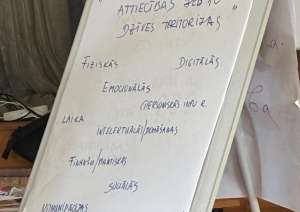 ATTIECĪBAS JEB 10
DZĪVES TERITORIJAS"
FIZISKĀS DIGITĀLĀS
EMOCIONĀLĀS
PERSONISKĀS INFO R.
LAIKA
INTELEKTUĀLĀS/DOMĀŠANAS
FINANŠU/MANTISKĀS
SOCIĀLĀS
KOMUNIKĀCIJAS